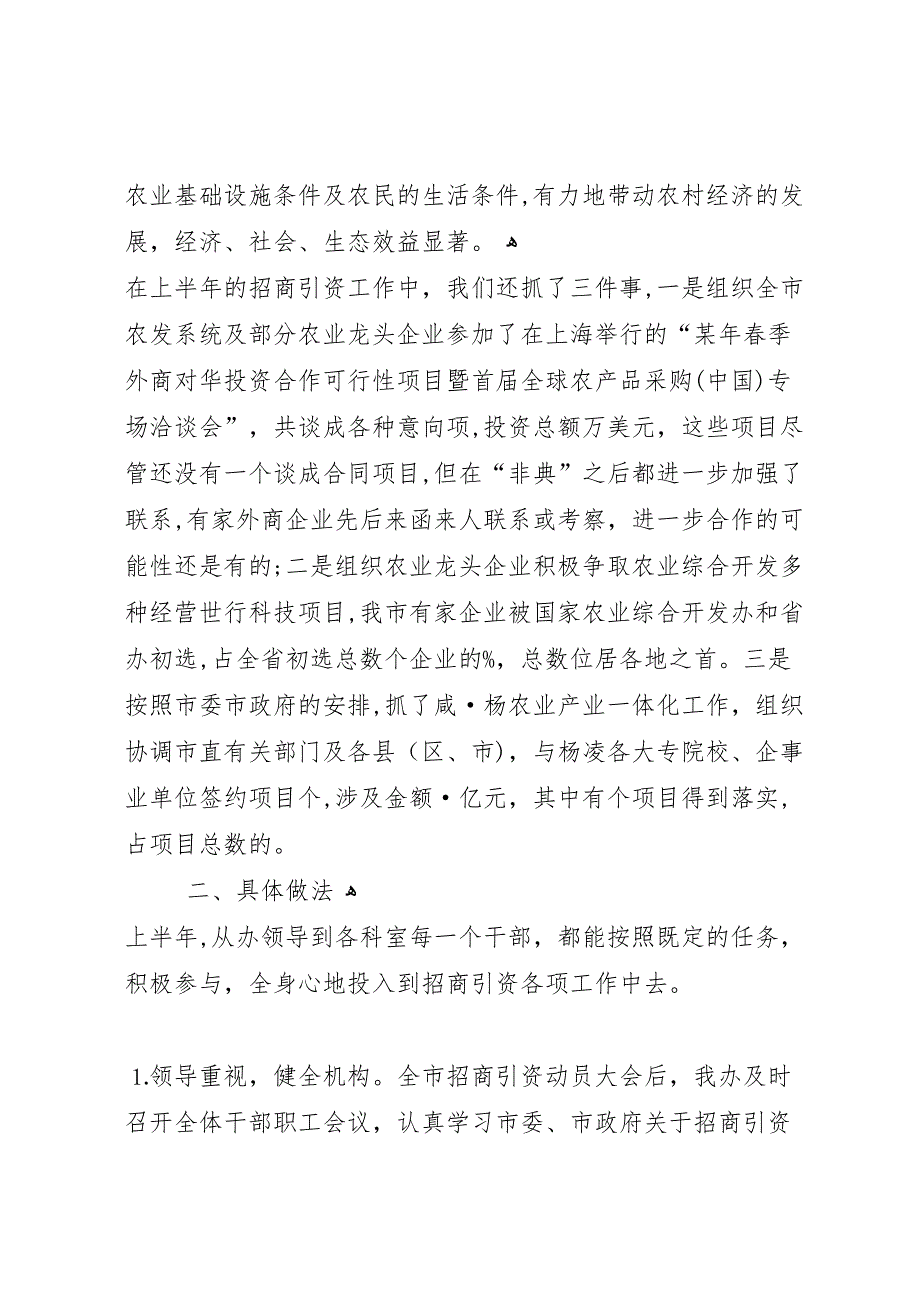 农业基础设施条件及农民的生活条件,有力地带动农村经济的发
展，经济、社会、生态效益显著。 ﻫ
在上半年的招商引资工作中，我们还抓了三件事,一是组织全市
农发系统及部分农业龙头企业参加了在上海举行的“某年春季
外商对华投资合作可行性项目暨首届全球农产品采购(中国)专
场洽谈会”，共谈成各种意向项,投资总额万美元，这些项目尽
管还没有一个谈成合同项目,但在“非典”之后都进一步加强了
联系,有家外商企业先后来函来人联系或考察，进一步合作的可
能性还是有的;二是组织农业龙头企业积极争取农业综合开发多
种经营世行科技项目,我市有家企业被国家农业综合开发办和省
办初选,占全省初选总数个企业的%，总数位居各地之首。三是
按照市委市政府的安排,抓了咸·杨农业产业一体化工作，组织
协调市直有关部门及各县（区、市)，与杨凌各大专院校、企事
业单位签约项目个,涉及金额·亿元，其中有个项目得到落实,
占项目总数的。
二、具体做法 ﻫ
上半年,从办领导到各科室每一个干部，都能按照既定的任务，
积极参与，全身心地投入到招商引资各项工作中去。
1.领导重视，健全机构。全市招商引资动员大会后，我办及时
召开全体干部职工会议，认真学习市委、市政府关于招商引资